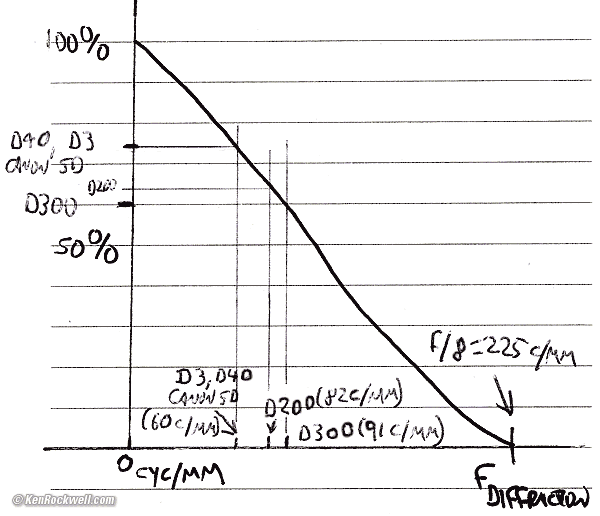 100%
D40, D3
CANON 5D
D200
D300
50%
F/8=225 C/MM
D3, D40
CANON 5D
(60 C/MM)
D200(82C/MM)
D300(91C/MM)
0 CYC/MM
F DIFFRACTION
© KenRockwell.com